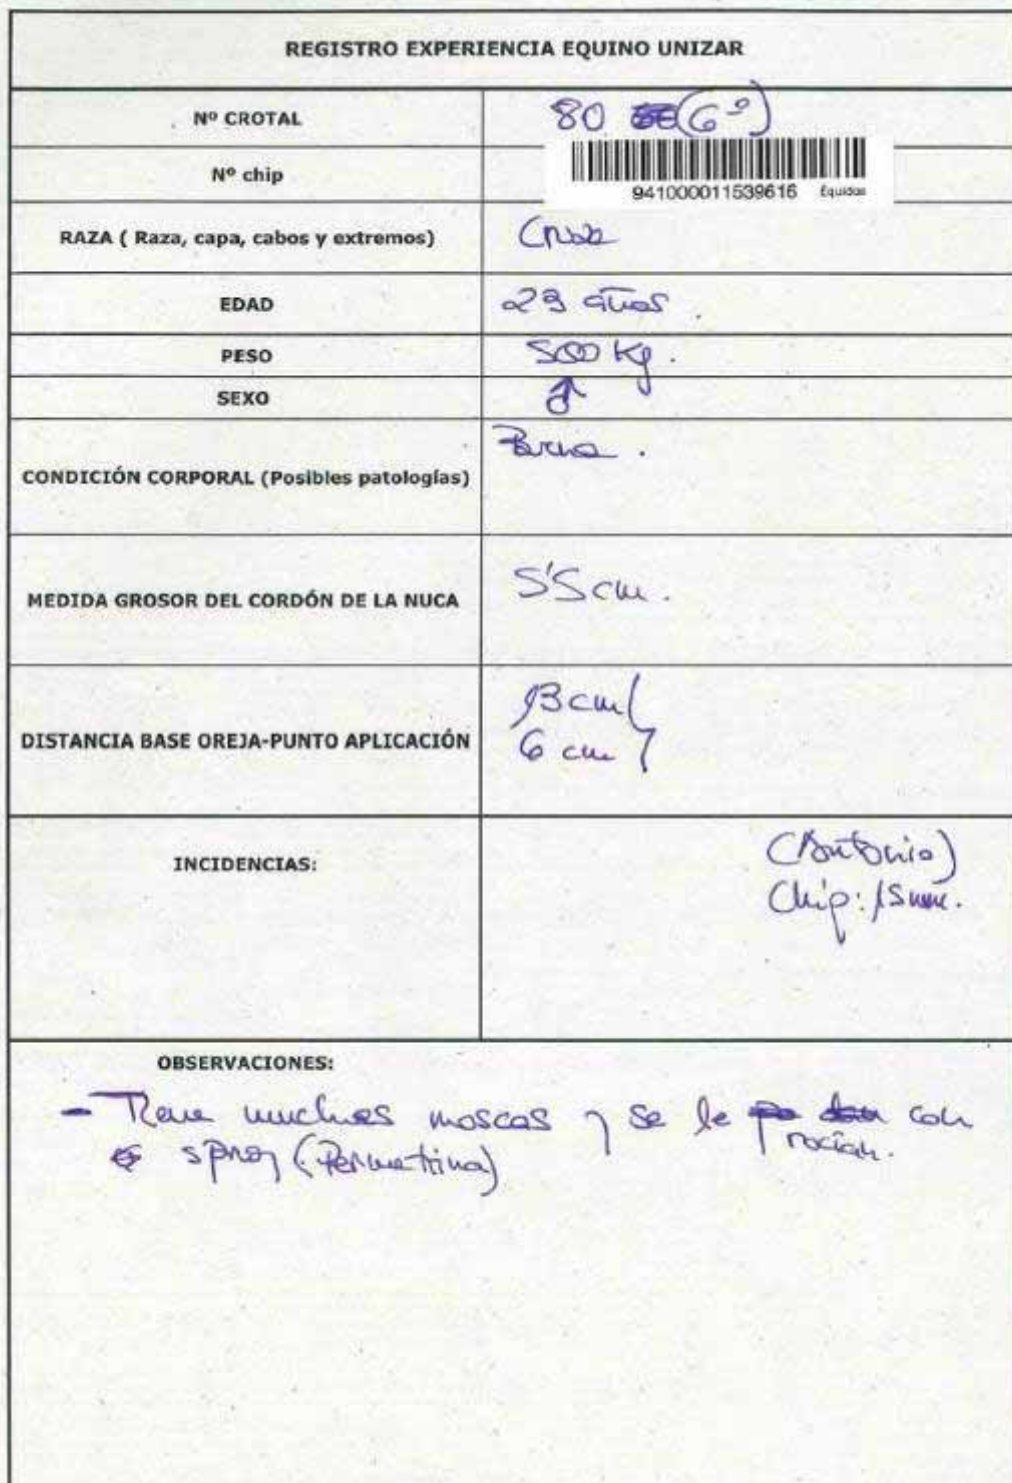 REGISTRO EXPERIENCIA EQUINO UNIZAR
Nº CROTAL 80 (6º)
Nº chip 941000011539616 Équidos
RAZA ( Raza, capa, cabos y extremos) Cruza
EDAD 23 años
PESO 500 Kg.
SEXO ♂
CONDICIÓN CORPORAL (Posibles patologías) Buena.
MEDIDA GROSOR DEL CORDÓN DE LA NUCA 5'5 cm.
DISTANCIA BASE OREJA-PUNTO APLICACIÓN 13 cm
6 cm
INCIDENCIAS: (Antonio)
Chip: 15mm.
OBSERVACIONES:
- Tiene muchas moscas y se le rocían con
spray (Permetrina)